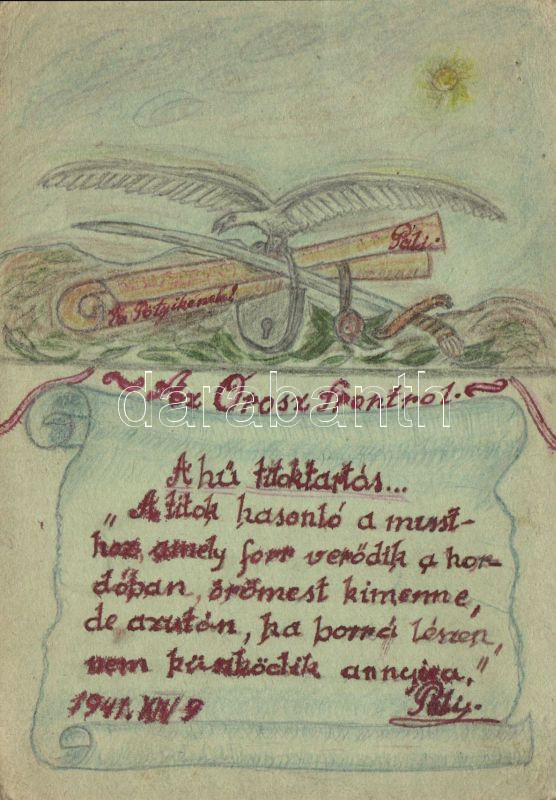 Páli.
Kis Pötyikének!
darabanth
Az Orosz frontról.
A hű titoktartás...
„A titok hasonló a must-
hoz, amely forr verődik a hor-
dóban, örömest kimenne,
de azután, ha borrá lészen,
nem küszködik annyira,"
1941. XII/9
Páli.